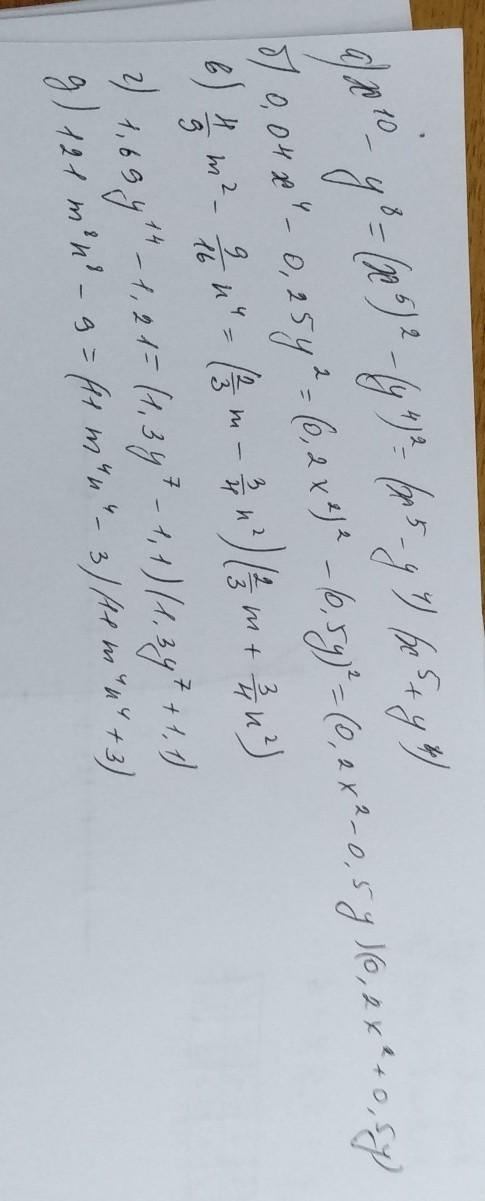 а) x¹⁰ - y⁸ = (x⁵)² - (y⁴)² = (x⁵ - y⁴) (x⁵ + y⁴)
б) 0,04x⁴ - 0,25y² = (0,2x²)² - (0,5y)² = (0,2x² - 0,5y)(0,2x² + 0,5y)
в) 4/9 m² - 9/16 n⁴ = (2/3 m - 3/4 n²) (2/3 m + 3/4 n²)
г) 1,69y¹⁴ - 1,21 = (1,3y⁷ - 1,1) (1,3y⁷ + 1,1)
д) 121m⁸n⁸ - 9 = (11m⁴n⁴ - 3) (11m⁴n⁴ + 3)